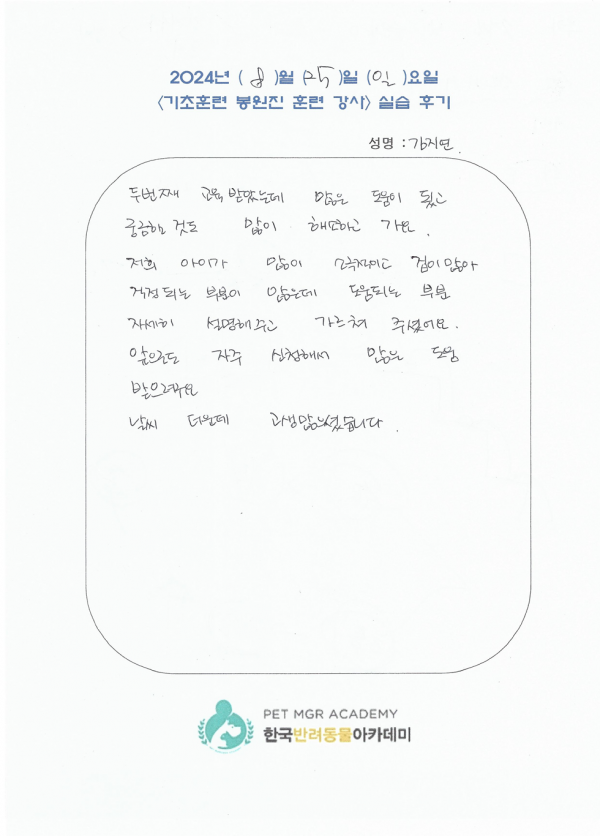 2024년 ( 8 )월 (25)일 (일)요일
<기초훈련 봉원진 훈련 강사> 실습 후기
성명 : 강지연.
두번째 교육 받았는데 많은 도움이 됬고
궁금하는 것도 많이 해소하고 가요.
저희 아이가 많이 소극적이고 겁이 많아
걱정되는 부분이 많은데 도움되는 부분
자세히 설명해주고 가르쳐 주셨어요.
앞으로도 자주 신청해서 많은 도움
받으려구요
날씨 더운데 고생많으셨습니다.
PET MGR ACADEMY
한국반려동물아카데미